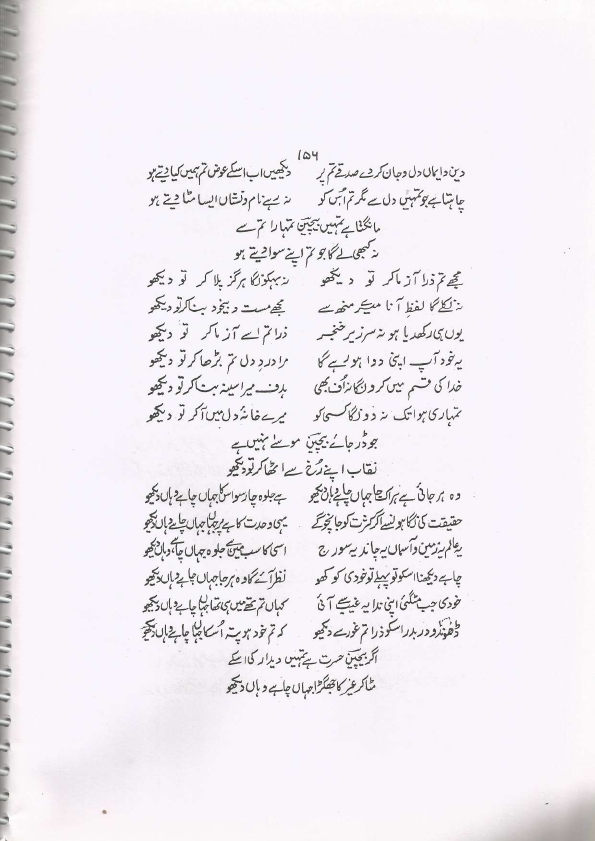 ۱۵۶
دین و ایماں دل و جان کر دے صدقے تم پر دیکھیں اب اسکے عوض تم ہمیں کیا دیتے ہو
چاہتا ہے جو تمہیں دل سے مگر تم اُس کو نہ رہے نام و نشاں ایسا مٹا دیتے ہو
مانگتا ہے تمہیں بیچین تمہارا تم سے
نہ کبھی لے گا جو تم اپنے سوا دیتے ہو
مجھے تم ذرا آزما کر تو دیکھو نہ بہکونگا ہرگز پلا کر تو دیکھو
نہ نکلے گا لفظِ آنا میرے منھ سے مجھے مست و بیخود بنا کر تو دیکھو
یوں ہی رکھدیا ہو نہ سر زیر خنجر ذرا تم اے آزما کر تو دیکھو
یہ خود آپ اپنی دوا ہولے گا مرا دردِ دل تم بڑھا کر تو دیکھو
خدا کی قسم میں کرونگا نہ اُف بھی ہدف میرا سینہ بنا کر تو دیکھو
تمہاری ہوا تک نہ دونگا کسی کو میرے خانۂ دل میں آ کر تو دیکھو
جو ڈر جائے بیچین موسےٰ نہیں ہے
نقاب اپنے رُخ سے اٹھا کر تو دیکھو
وہ ہر جائی ہے ہر اک جا جہاں چاہے وہاں دیکھو ہے جلوہ چار سو اسکا جہاں چاہے وہاں دیکھو
حقیقت کی نگاہوں سے اگر کثرت کو جانچو گے یہی وحدت کا ہے پرچہاں جہاں چاہے وہاں دیکھو
یہ عالم یہ زمین و آسماں یہ چاند یہ سورج اسی کا سب میں ہے جلوہ جہاں چاہے وہاں دیکھو
چاہے دیکھنا اسکو تو پہلے تو خودی کو کھو نظر آئے گا وہ ہر جا جہاں چاہے وہاں دیکھو
خودی جب مٹ گئی اپنی ندا یہ غیب سے آئی کہاں تم تھے میں ہی تھا جہاں چاہے وہاں دیکھو
ڈھونڈو در بدر اسکو ذرا تم غور سے دیکھو کہ تم خود ہو پتہ اُسکا جہاں چاہے وہاں دیکھو
اگر بیچین حسرت ہے تمہیں دیدار کی اسکے
مٹا کر غیر کا جھگڑا جہاں چاہے وہاں دیکھو